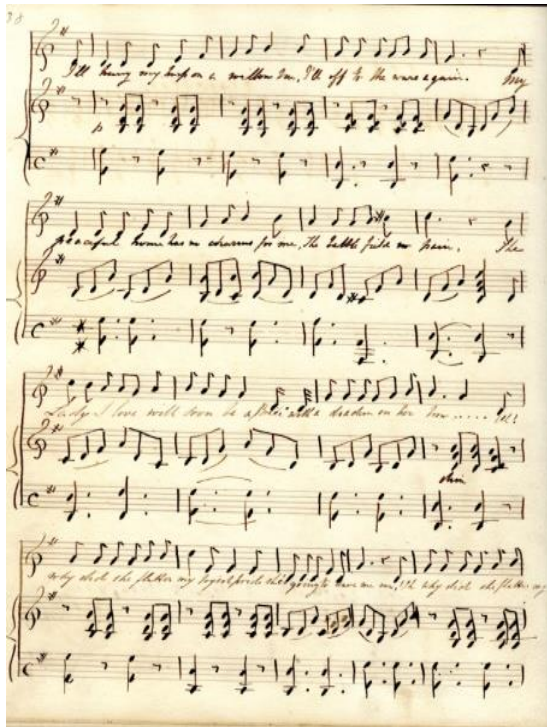 38
I'll hang my harp on a willow tree, I'll off to the wars again. My
p
peaceful home has no charms for me, The battle field no pain. The
Lady I love will soon be a bride with a diadem on her brow..... Oh!
dim
why did she flatter my boyish pride she's going to leave me now, Oh why did she flatter my